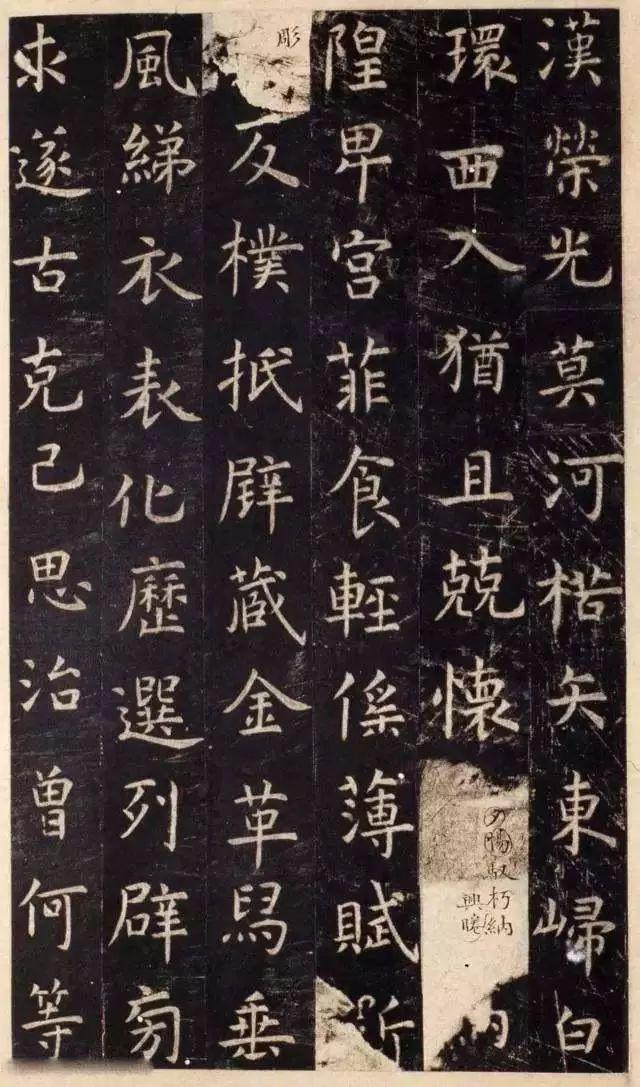 漢榮光莫河楛矢東歸白
環西入猶且兢懷
馭朽納
納
隍卑宮菲食輕傜薄賦斲
彫
反樸抵璧藏金革舄垂
風綈衣表化歷選列辟旁
求遂古克己思治曾何等